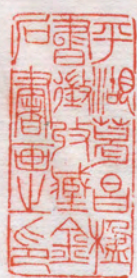 平湖葛昌楹
書徵攷藏金
石書畫之印